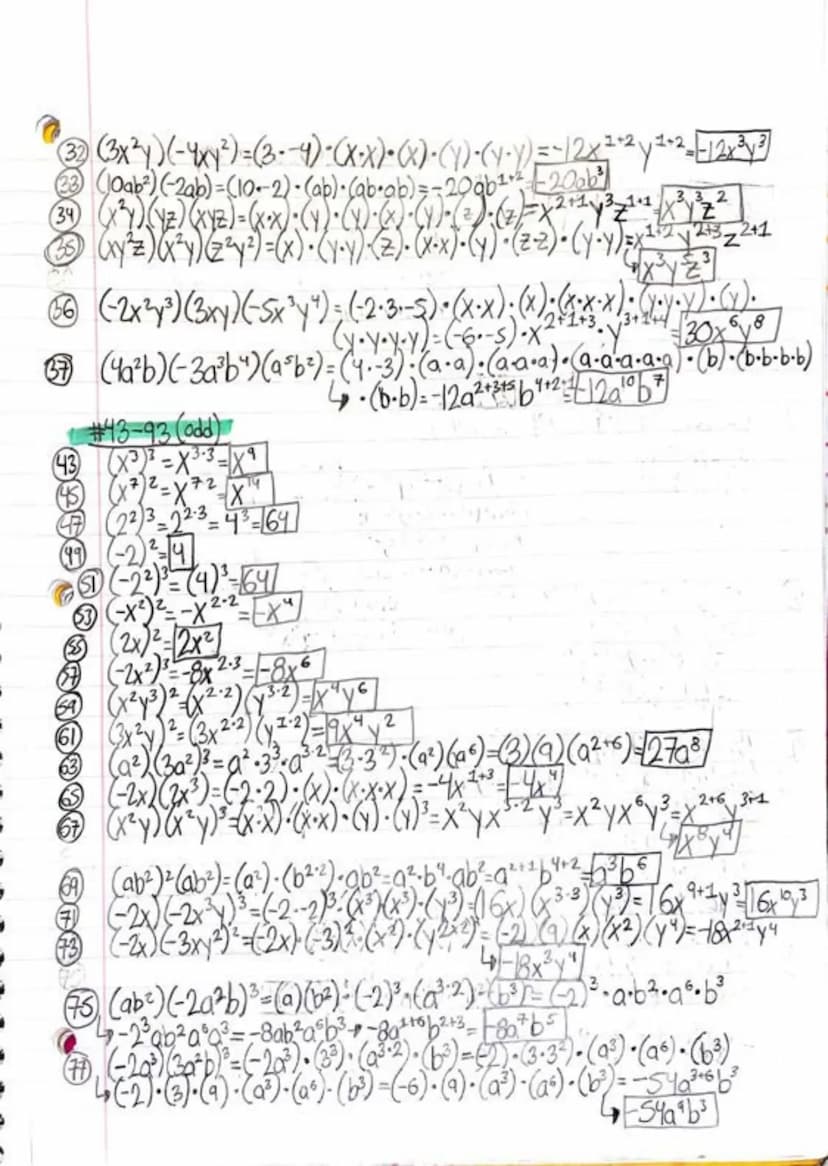 32 (3x²y)(-4xy²)=(3·-4)·(x·x)·(x)·(y)·(y·y)=-12x¹⁺²y¹⁺²=-12x³y³
33 (10ab²)(-2ab)=(10·-2)·(ab)·(ab·ab)=-20ab¹⁺²=-20ab³
34 (x²y)(yz)(xyz)=(x·x)·(y)·(y)·(x)·(y)·(z)·(z)=x²⁺¹y³z¹⁺¹=x³y³z²
35 (xy²z)(x²y)(z²y²)=(x)·(y·y)·(z)·(x·x)·(y)·(z·z)·(y·y)=x¹⁺²y²⁺³z²⁺¹
↳x³y⁵z³
36 (-2x²y³)(3xy)(-5x³y⁴)=(-2·3·-5)·(x·x)·(x)·(x·x·x)·(y·y·y)·(y)·
(y·y·y·y)=(-6·-5)·x²⁺¹⁺³·y³⁺¹⁺⁴=30x⁶y⁸
37 (4a²b)(-3a³b⁴)(a⁵b²)=(4·-3)·(a·a)·(a·a·a)·(a·a·a·a·a)·(b)·(b·b·b·b)
↳·(b·b)=-12a²⁺³⁺⁵b⁴⁺²⁺¹=-12a¹⁰b⁷
#43-93 (odd)
43 (x³)³=x³·³=x⁹
45 (x⁷)²=x⁷·²=x¹⁴
47 (2²)³=2²·³=4³=64
49 (-2)²=4
51 (-2²)³=(4)³=64
53 (-x²)²=-x²·²=-x⁴
55 (2x)²=2x²
57 (-2x²)³=-8x²·³=-8x⁶
59 (x²y³)²=(x²·²)(y³·²)=x⁴y⁶
61 (3x²y)²=(3x²·²)(y¹·²)=9x⁴y²
63 (a²)(3a²)³=a²·3³·a³·²=(3·3²)·(a²)(a⁶)=(3)(9)(a²⁺⁶)=27a⁸
65 (-2x)(2x³)=(-2·2)·(x)·(x·x·x)=-4x¹⁺³=-4x⁴
67 (x²y)(x²y)³=(x·x)·(x·x)·(y)·(y)³=x²yx³·²y³=x²yx⁶y³=x²⁺⁶y³⁺¹
↳x⁸y⁴
69 (ab²)²(ab²)=(a²)·(b²·²)·ab²=a²·b⁴·ab²=a²⁺¹b⁴⁺²=a³b⁶
71 (-2x)(-2x³y)³=(-2·-2)³·(x³)(x³)·(y³)=(16x)(x³·³)(y³)=16x⁹⁺¹y³=16x¹⁰y³
73 (-2x)(-3xy²)²=(-2x)·(-3)²·(x²)·(y²ˣ²)=(-2)(9)(x)(x²)(y⁴)=-18x²⁺¹y⁴
↳-18x³y⁴
75 (ab²)(-2a²b)³=(a)(b²)·(-2)³·(a³·²)·(b³)=(-2)³·a·b²·a⁶·b³
↳-2³ab²a⁶a³=-8ab²a⁶b³→-8a¹⁺⁶b²⁺³=-8a⁷b⁵
77 (-2a³)(3a²b)³=(-2a³)·(3³)·(a³·²)·(b³)=(-2)·(3·3²)·(a³)·(a⁶)·(b³)
↳(-2)·(3)·(9)·(a³)·(a⁶)·(b³)=(-6)·(9)·(a³)·(a⁶)·(b³)=-54a³⁺⁶b³
↳-54a⁹b³